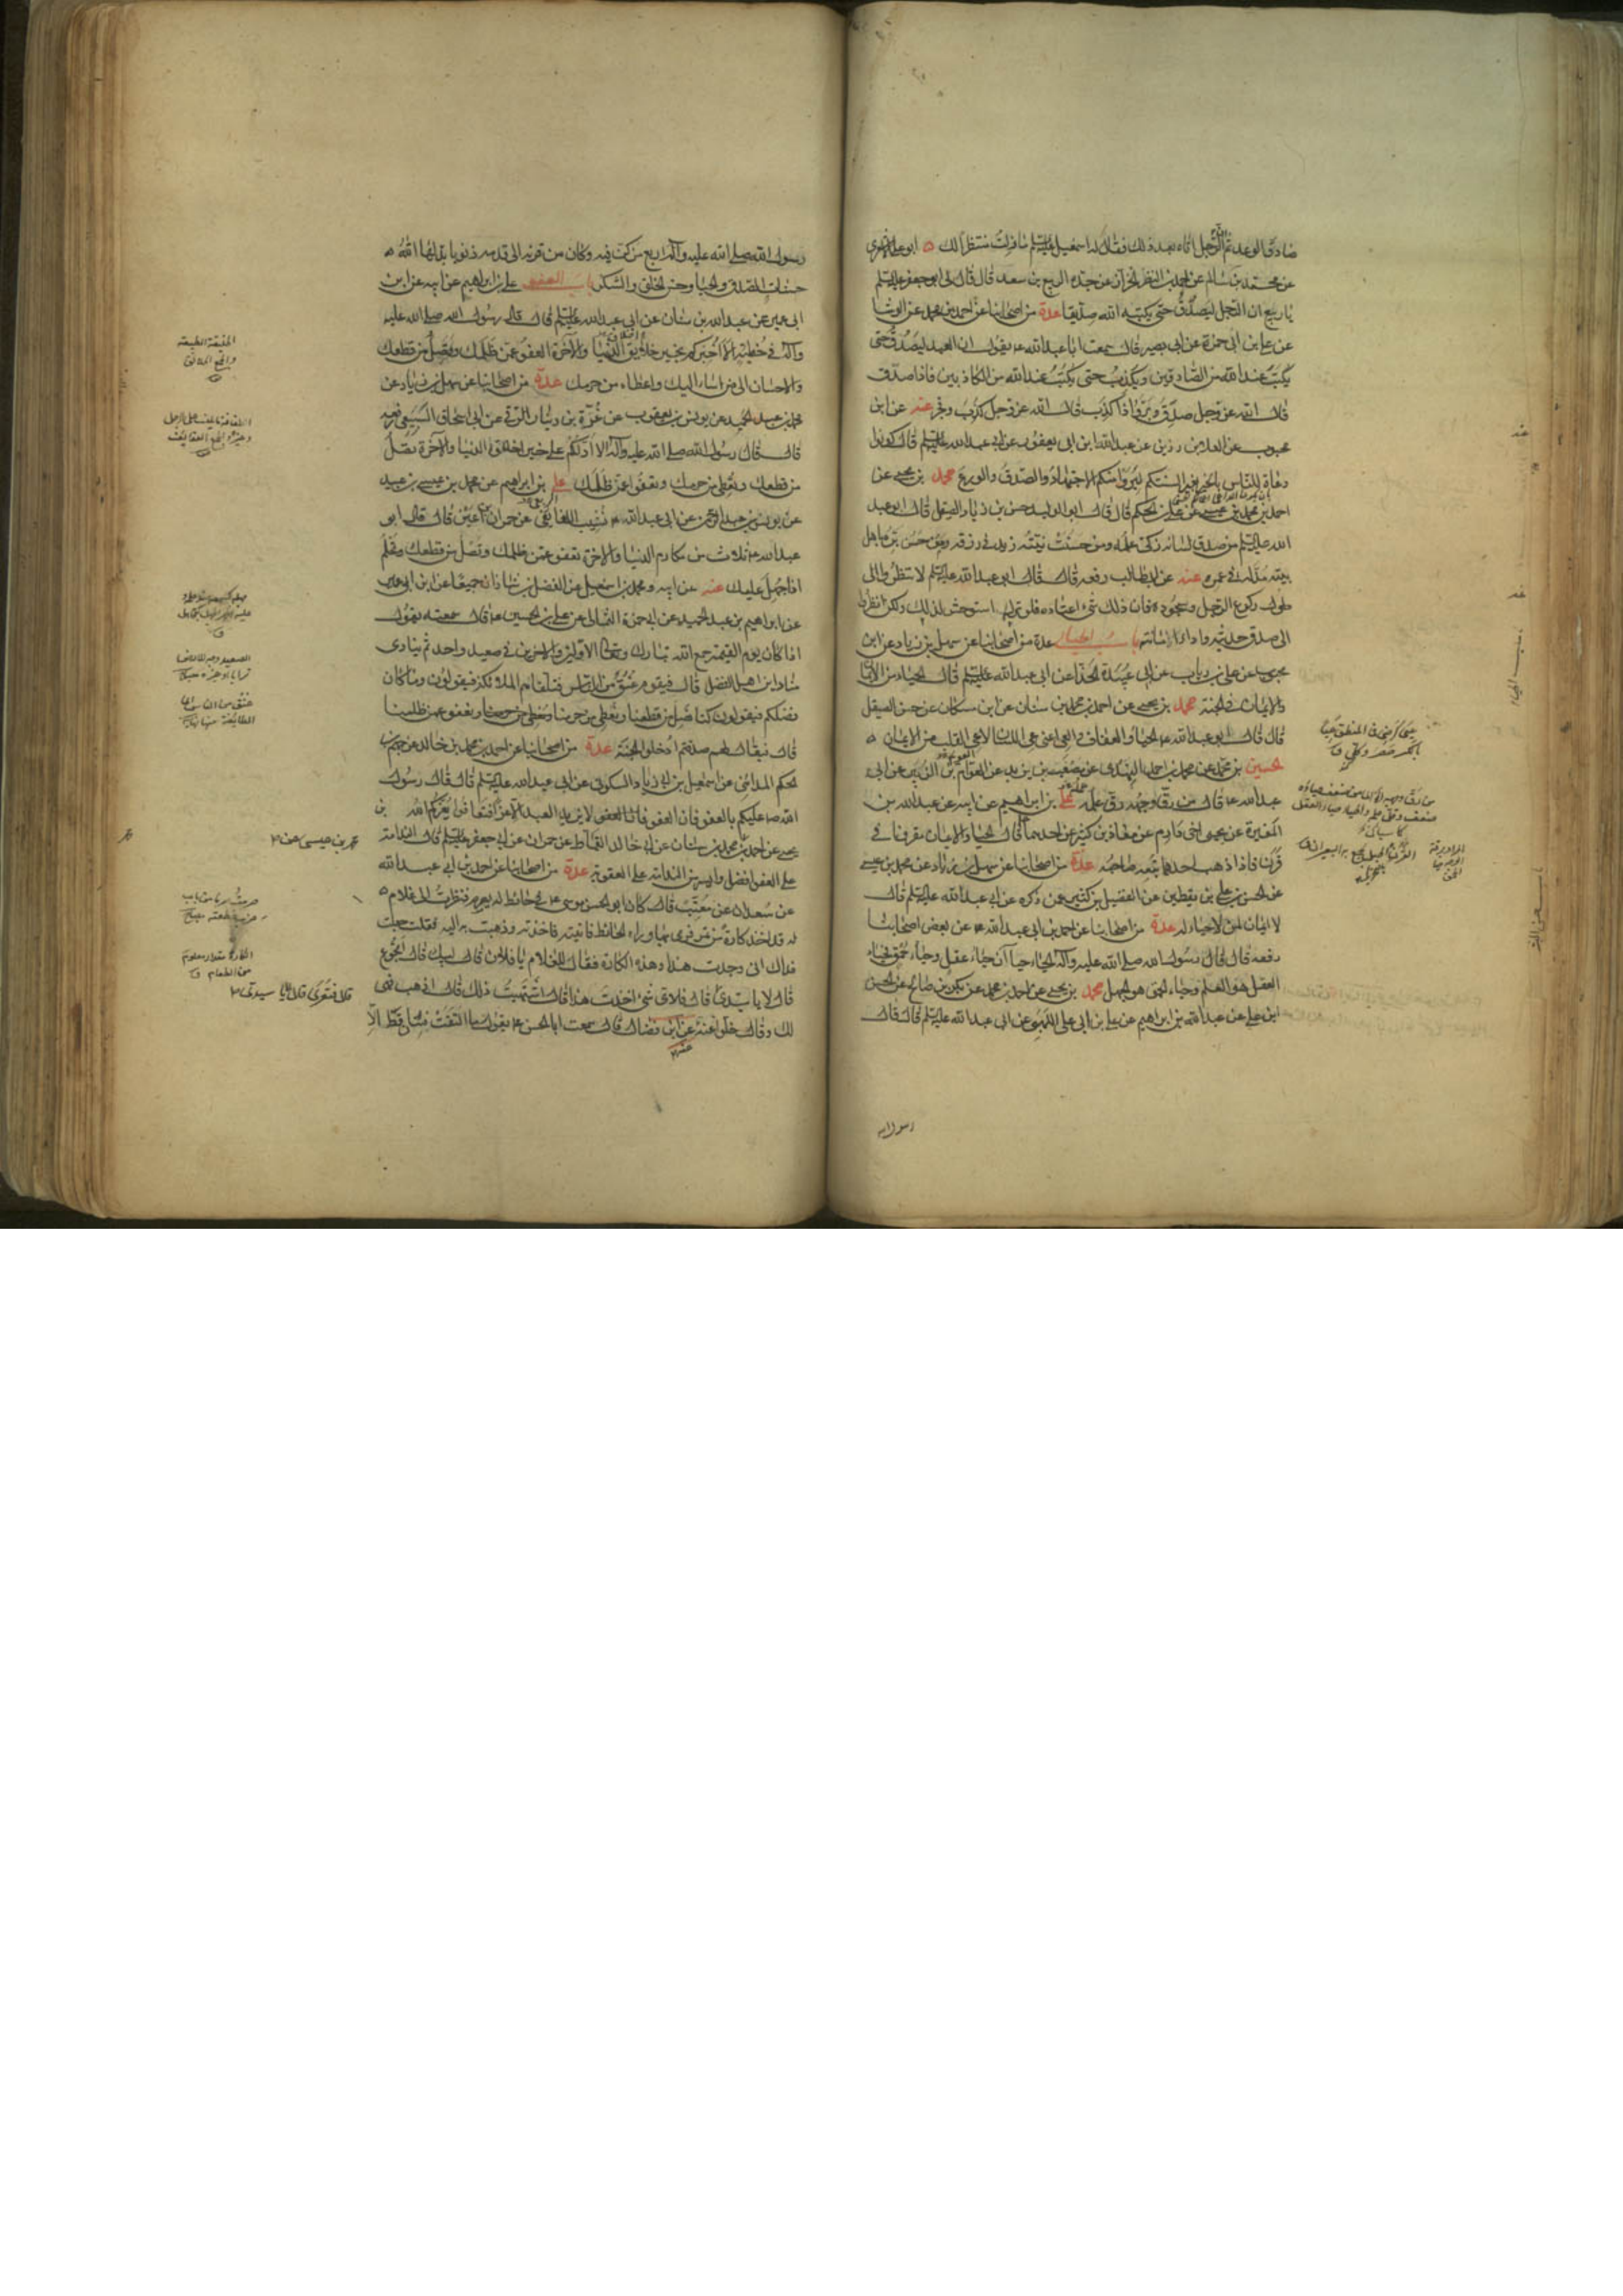 صادق الوعد ثم ان الرجل اتاه بعد ذلك فقال له اسمعيل عليه السلم ما زلت منتظرا لك ه ابو علي الاشعري
عن محمد بن سالم عن احمد بن النضر الخزاز عن جده الربيع بن سعد قال قال لي ابو جعفر عليه السلم
يا ربيع ان الرجل ليصدق حتى يكتبه الله صديقا عدة من اصحابنا عن احمد بن محمد عن الوشا
عن علي بن ابي حمزة عن ابي بصير قال سمعت ابا عبد الله ع يقول ان العبد ليصدق حتى
يكتب عند الله من الصادقين ويكذب حتى يكتب عند الله من الكاذبين فاذا صدق
قال الله عز وجل صدق وبر واذا كذب قال الله عز وجل كذب وفجر عنه عن ابن
محبوب عن العلا بن رزين عن عبد الله ابن ابي يعفور عن ابي عبد الله عليه السلم قال كونوا
دعاة للناس بالخير بغير السنتكم ليروا منكم الاجتهاد والصدق والورع محمد بن يحيى عن
احمد بن محمد بن عيسى عن علي بن الحكم قال قال ابو الوليد حسن بن زياد الصيقل قال ابو عبد
الله عليه السلم من صدق لسانه زكى عمله ومن حسنت نيته زيد في رزقه ومن حسن بره باهل
بيته مد له في عمره عنه عن ابي طالب رفعه قال قال ابو عبد الله عليه السلم لا تنظروا الى
طول ركوع الرجل وسجوده فان ذلك شيء اعتاده فلو تركه استوحش لذلك ولكن انظروا
الى صدق حديثه واداء امانته باب الحياء عدة من اصحابنا عن سهل بن زياد عن ابن
محبوب عن علي بن رياب عن ابي عبيدة الحذا عن ابي عبد الله عليه السلم قال الحياء من الايمان
والايمان في الجنة محمد بن يحيى عن احمد بن محمد بن سنان عن ابن مسكان عن حسن الصيقل
قال قال ابو عبد الله ع الحياء والعفاف والعي اعني عي اللسان لا عي القلب من الايمان ه
الحسين بن محمد عن محمد بن احمد النهدي عن مصعب بن يزيد عن العوام بن الزبير عن ابي
عبد الله ع قال من رق وجهه رق علمه علي بن ابراهيم عن ابيه عن عبد الله بن
المغيرة عن يحيى اخي دارم عن معاذ بن كثير عن احدهما قال الحياء والايمان مقرونان في
قرن فاذا ذهب احدهما تبعه صاحبه عدة من اصحابنا عن سهل بن زياد عن محمد بن عيسى
عن الحسن بن علي بن يقطين عن الفضيل بن كثير عمن ذكره عن ابي عبد الله عليه السلم قال
لا ايمان لمن لا حياء له عدة من اصحابنا عن احمد بن ابي عبد الله عن بعض اصحابنا
رفعه قال قال رسول الله صلى الله عليه وآله الحياء حياآن حياء عقل وحياء حمق فحياء
العقل هو العلم وحياء الحمق هو الجهل محمد بن يحيى عن احمد بن محمد عن بكر بن صالح عن الحسن
ابن علي عن عبد الله بن ابراهيم عن علي بن ابي علي اللهبي عن ابي عبد الله عليه السلم قال قال
رسول الله
رسول الله صلى الله عليه وآله اربع من كن فيه وكان من قرنه الى قدمه ذنوبا بدلها الله ه
حسنات الصدق والحياء وحسن الخلق والشكر باب العفو علي بن ابراهيم عن ابيه عن ابن
ابي عمير عن عبد الله بن سنان عن ابي عبد الله عليه السلم قال قال رسول الله صلى الله عليه
وآله في خطبته الا اخبركم بخير خلايق الدنيا والآخرة العفو عمن ظلمك وتصل من قطعك
والاحسان الى من اساء اليك واعطاء من حرمك عدة من اصحابنا عن سهل بن زياد عن
محمد بن عبد الحميد عن يونس بن يعقوب عن غرة بن دينار الرقي عن ابي اسحاق السبيعي رفعه
قال قال رسول الله صلى الله عليه وآله الا ادلكم على خير اخلاق الدنيا والآخرة تصل
من قطعك وتعطي من حرمك وتعفو عمن ظلمك علي بن ابراهيم عن محمد بن عيسى بن عبيد
عن يونس بن عبد الرحمن عن ابي عبد الله نشيب اللفايفي عن حمران بن اعين قال قال ابو
عبد الله ع ثلاث من مكارم الدنيا والاخرة تعفو عمن ظلمك وتصل من قطعك وتحلم
اذا جهل عليك عنه عن ابيه ومحمد بن اسمعيل عن الفضل بن شاذان جميعا عن ابن ابي عمير
عن ابراهيم بن عبد الحميد عن ابي حمزة الثمالي عن علي بن الحسين ع قال سمعته يقول
اذا كان يوم القيمة جمع الله تبارك وتعالى الاولين والاخرين في صعيد واحد ثم ينادي
مناد اين اهل الفضل قال فيقوم عنق من الناس فتلقاهم الملائكة فيقولون وما كان
فضلكم فيقولون كنا نصل من قطعنا ونعطي من حرمنا ونعفو عمن ظلمنا
قال فيقال لهم صدقتم ادخلوا الجنة عدة من اصحابنا عن احمد بن محمد بن خالد عن جهم بن
الحكم المدائني عن اسمعيل بن ابي زياد السكوني عن ابي عبد الله عليه السلم قال قال رسول
الله ص عليكم بالعفو فان العفو لا يزيد العبد الا عزا فتعافوا يعزكم الله بن
يحيى عن احمد بن محمد بن سنان عن ابي خالد القماط عن حمران عن ابي جعفر عليه السلم قال الندامة
على العفو افضل وايسر من الندامة على العقوبة عدة من اصحابنا عن احمد بن ابي عبد الله
عن سعدان عن معتب قال كان ابو الحسن موسى ع في حائط له يصرم فنظرت الى غلام ه
له قد اخذ كارة من تمر فرمى بها وراء الحائط فاتيته فاخذته وذهبت به اليه فقلت جعلت
فداك اني وجدت هذا وهذه الكارة فقال للغلام يا فلان قال لبيك قال اتجوع
قال لا يا سيدي قال فلاي شيء اخذت هذا قال اشتهيت ذلك قال اذهب فهي
لك وقال خلوا عنه عن ابن فضال قال سمعت ابا الحسن ع يقول ما التقت فئتان قط الا
محمد بن عيسى عن
قال فتعرى قال لا يا سيدي